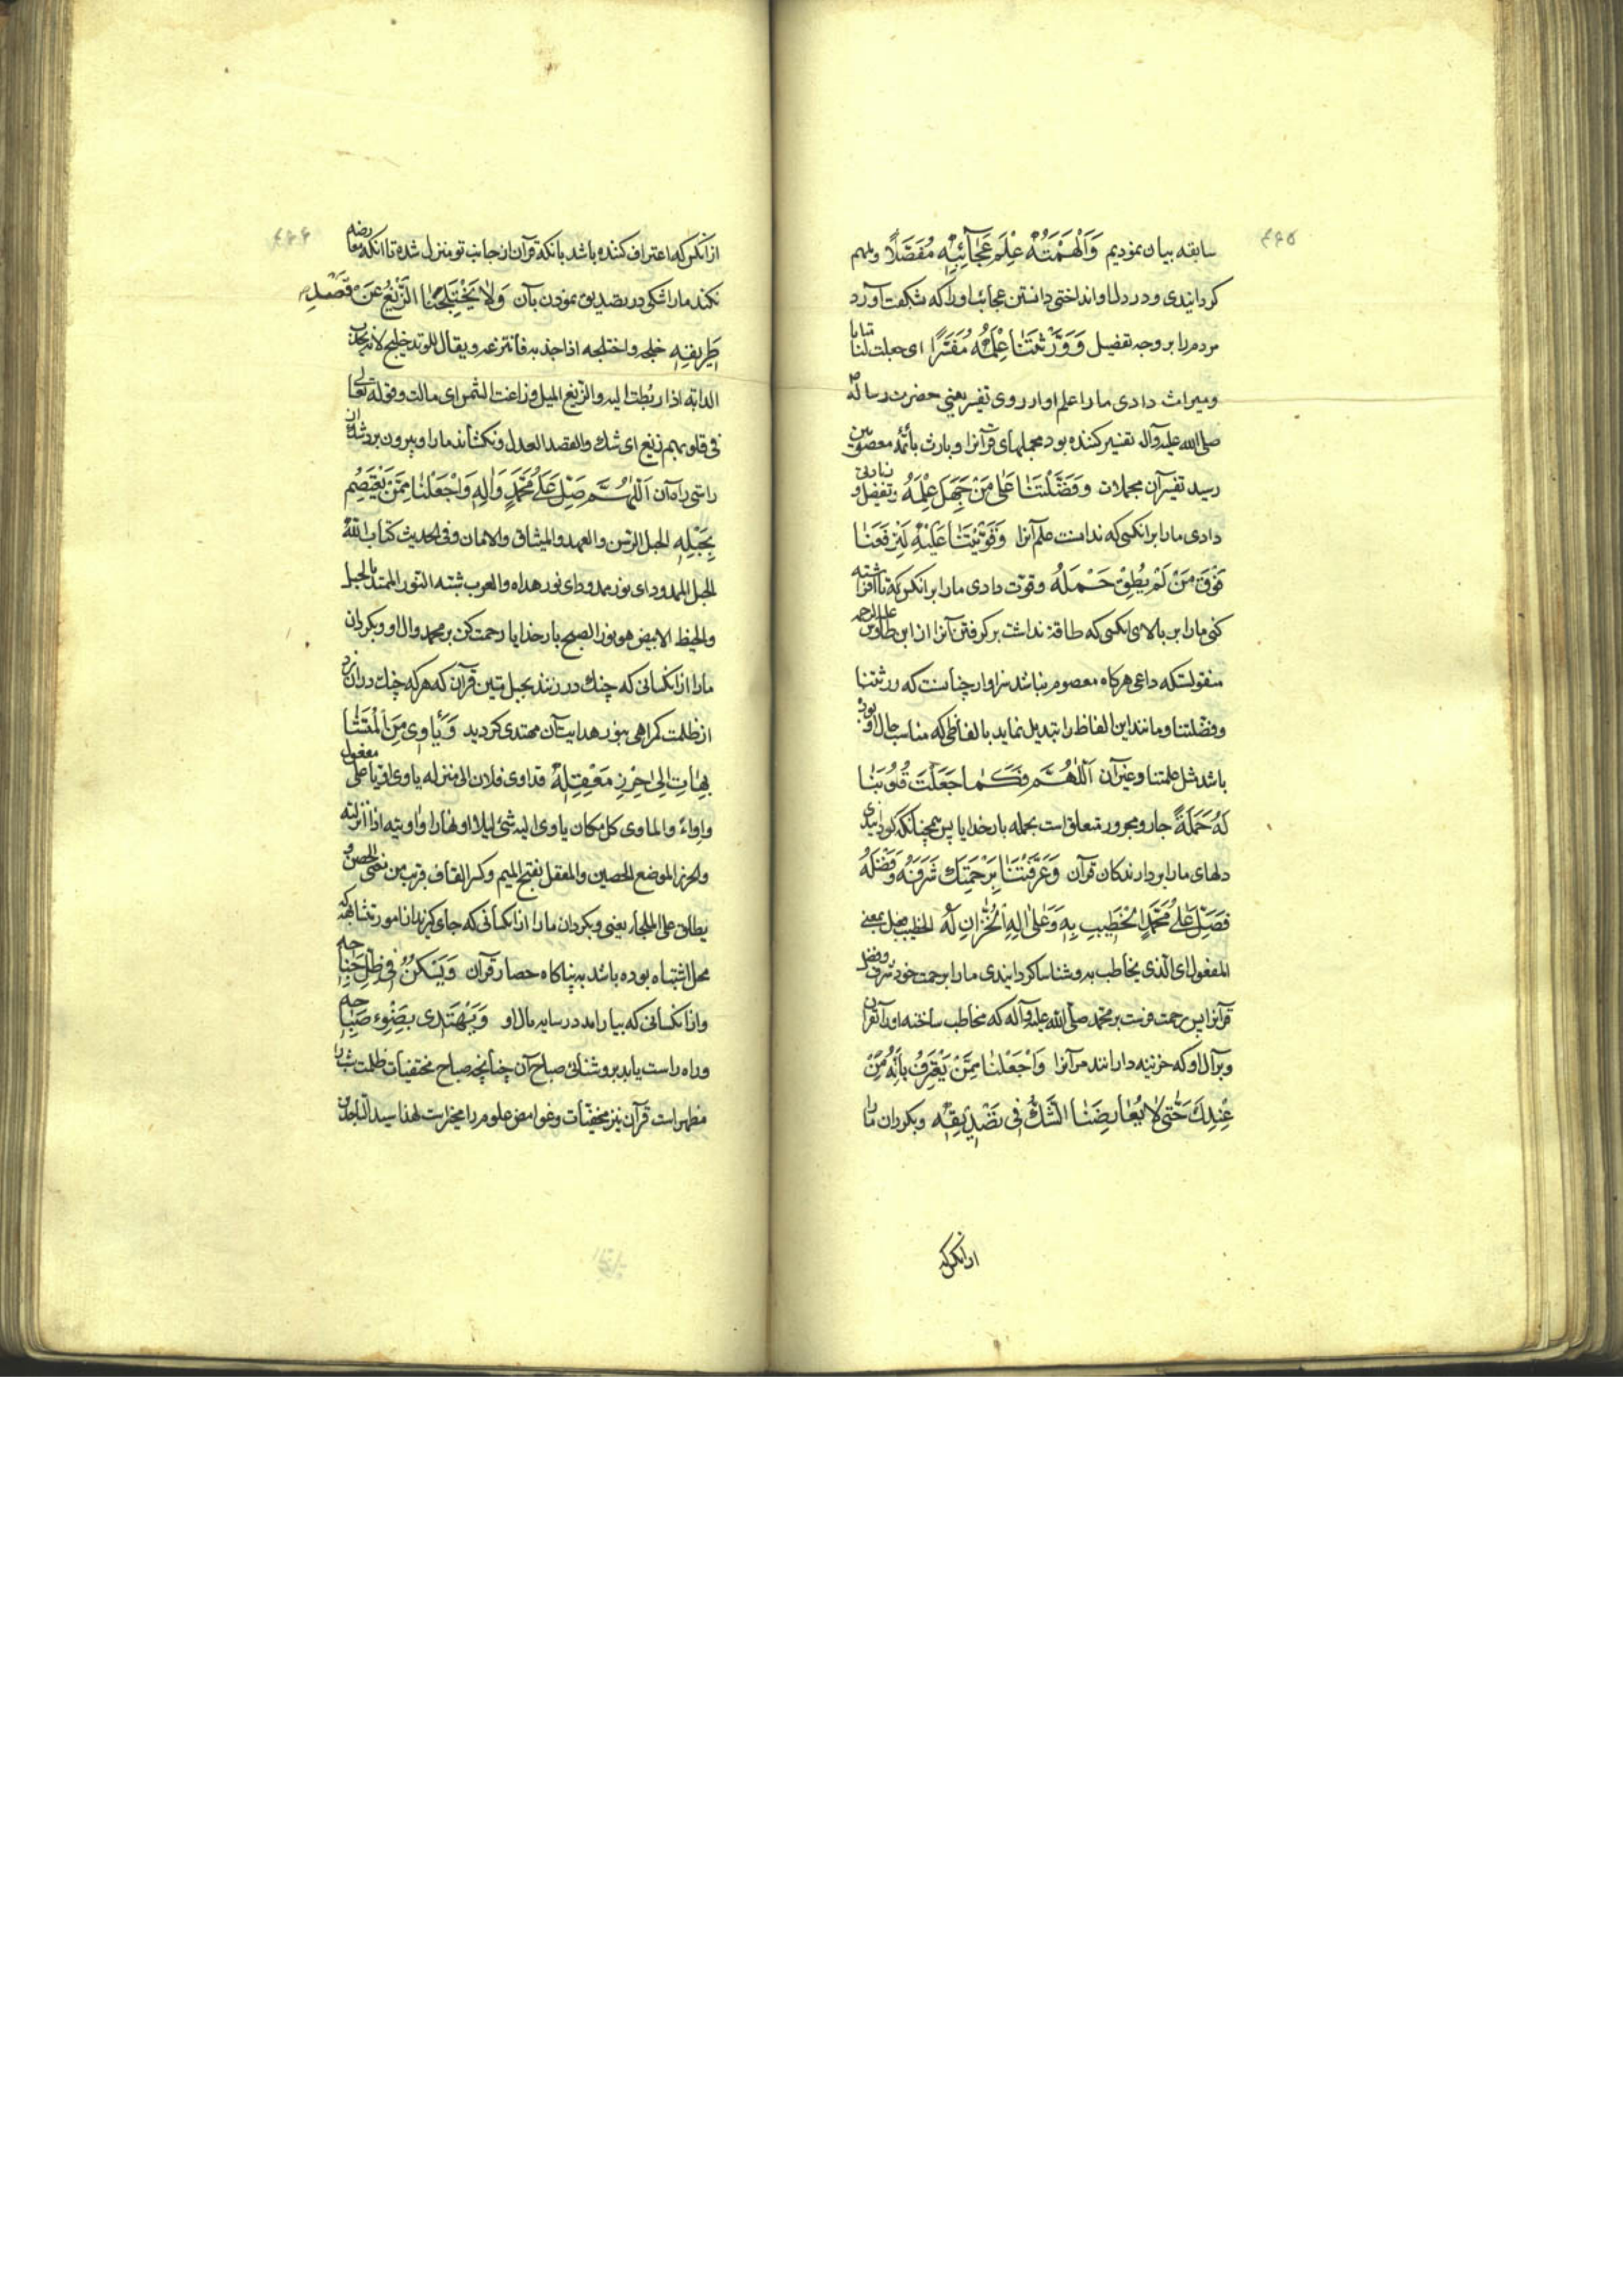 ۴۶۵
سابقه بیان نمودیم وَاَلْهَمْتَهُ عِلْمَ عَجٰآئِبِهٖ مُفَصَّلاً و ملهم
کردانیدی و در دل او انداختی دانستن عجائب او را که بشکفت آورد
مردم را بر وجه تفضیل وَوَرَّثْتَنٰا عِلْمَهُ مُفَسَّرًا ای جعلت لنا
و میراث دادی ما را علم او از روی تفسیر یعنی حضرت رسالة
صلی الله علیه وآله تفسیر کننده بود مجملهای قرآنرا و بارث بائمّه معصومین
رسید تفسیر آن مجملات وَفَضَّلْتَنٰا عَلیٰ مَنْ جَهِلَ عِلْمَهُ و تفضل و زیادتی
دادی ما را بر انکسی که ندانست علم آنرا وَقَوَّیْتَنٰا عَلَیْهِ لِتَرْفَعَنٰا
فَوْقَ مَنْ لَمْ یُطِقْ حَمْلَهُ و قوّت دادی ما را بر انکس که تا افراشته
کنی ما را بر بالای انکسی که طاقة نداشت بر کرفتن آنرا از ابن طاوس علیه الرحمه
منقولستکه داعی هرکاه معصوم نباشد سزاوار چنانست که ورثتنا
و فضّلتنا و مانند این الفاظ را تبدیل نماید بالفاظی که مناسب حال او بوده
باشد مثل علمتنا و غیر آن اَللّٰهُمَّ فَکَمٰا جَعَلْتَ قُلُوبَنٰا
لَهُ حَمَلَةً جار و مجرور متعلق است بحمله بار خدایا پس همچنانکه کردانیدی
دلهای ما را بردارندکان قرآن وَعَرَّفْتَنٰا بِرَحْمَتِکَ شَرَفَهُ وَفَضْلَهُ
فَصَلِّ عَلیٰ مُحَمَّدٍ الْخَطِیبِ بِهِ وَعَلیٰ الِهِ الْخُزّٰانِ لَهُ الخطیب فعیل بمعنی
المفعول ای الّذی یخاطب به و شناسا کردانیدی ما را برحمت خود شرف و فضل
قرآنرا پس رحمت فرست بر محمّد صلی الله علیه وآله که مخاطب ساخته او را بقرآن
و بر آل او که خزینه دارانند مر آنرا وَاجْعَلْنٰا مِمَّنْ یَعْتَرِفُ بِاَنَّهُ مِنْ
عِنْدِکَ حَتّٰی لاٰ یُعٰارِضَنٰا الشَّکُّ فِی تَصْدِیقِهٖ و بکردان ما را
از انکس که
۴۶۶
از انکس که اعتراف کننده باشد بانکه قرآن از جانب تو منزل شده تا انکه معارضه
نکند ما را شکی در تصدیق نمودن بآن وَلاٰ یَخْتَلِجَنٰا الزَّیْغُ عَنْ قَصْدِ
طَرِیقِهِ خلجه و اختلجه اذا جذبه فانتزعه و یقال للوتد خلیج لانه یجذب
الدابّه اذا ربطت الیه والزّیغ المیل و زاغت الشمس ای مالت و قوله تعالی
فی قلوبهم زیغ ای شک والقصد العدل و نکشاند ما را و بیرون برد شک از
راستی راه آن اَللّٰهُمَّ صَلِّ عَلیٰ مُحَمَّدٍ وَالِهِ وَاجْعَلْنٰا مِمَّنْ یَعْتَصِمُ
بِحَبْلِهِ الحبل الرّسن والعهد والمیثاق والامان و فی الحدیث کتاب الله
الحبل الممدود ای نور ممدود ای نور هداه والعرب شبّه النّور الممتد بالحبل
والخیط الابیض هو نور الصبح بار خدایا رحمت کن بر محمد وال او و بکردان
ما را از انکسانی که چنک در زنند بحبل متین قرآن که هر که چنک در آن زد
از ظلمت کمراهی بنور هدایت آن مهتدی کردید وَیَأْوِی مِنَ الْمُتَشٰا
بِهٰاتِ اِلیٰ حِرْزِ مَعْقِلِهِ قد اوی فلان الی منزله یاوی اویا علی مفعول
و اواءً والماوی کل مکان یاوی الیه شیٔ لیلا او نهارا و اویته اذا انزلته
والحرز الموضع الحصین والمعقل بفتح المیم و کسر القاف قریب من معنی الحصن و
یطلق علی الملجأ یعنی و بکردان ما را از انکسانی که جای کیرند از امور متشابهه که
محل اشتباه بوده باشد به پناهکاه حصار قرآن وَیَسْکُنُ فِی ظِلِّ جَنٰاحِهِ
و از انکسانی که بیارامد در سایه مال او وَیَهْتَدِی بِضَوْءِ صَبٰاحِهِ
و راه راست یابد بروشنائی صباح آن چنانچه صباح مختفیات ظلمت شب را
مظهر است قرآن نیز مخفیّات و غوامض علوم را مخبر است لهذا سید الساجدین